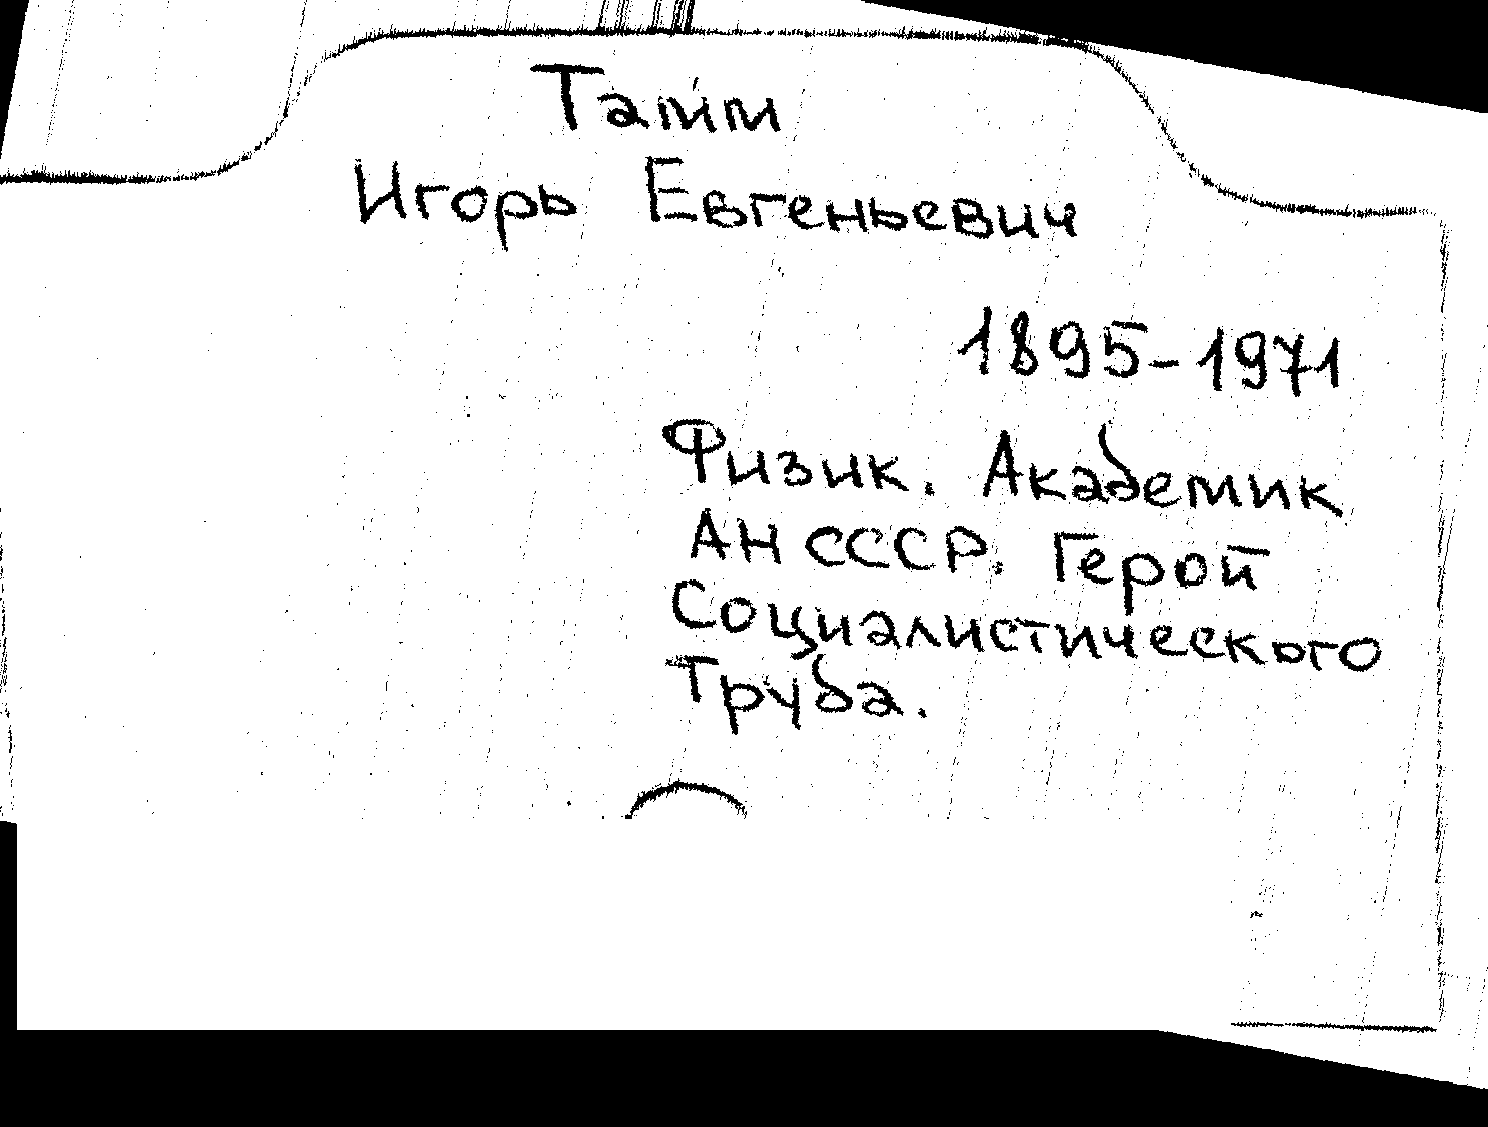 Тамм
Игорь Евгеньевич
1895-1971
Физик. Академик
АН СССР. Герой
Социалистического
Труда.